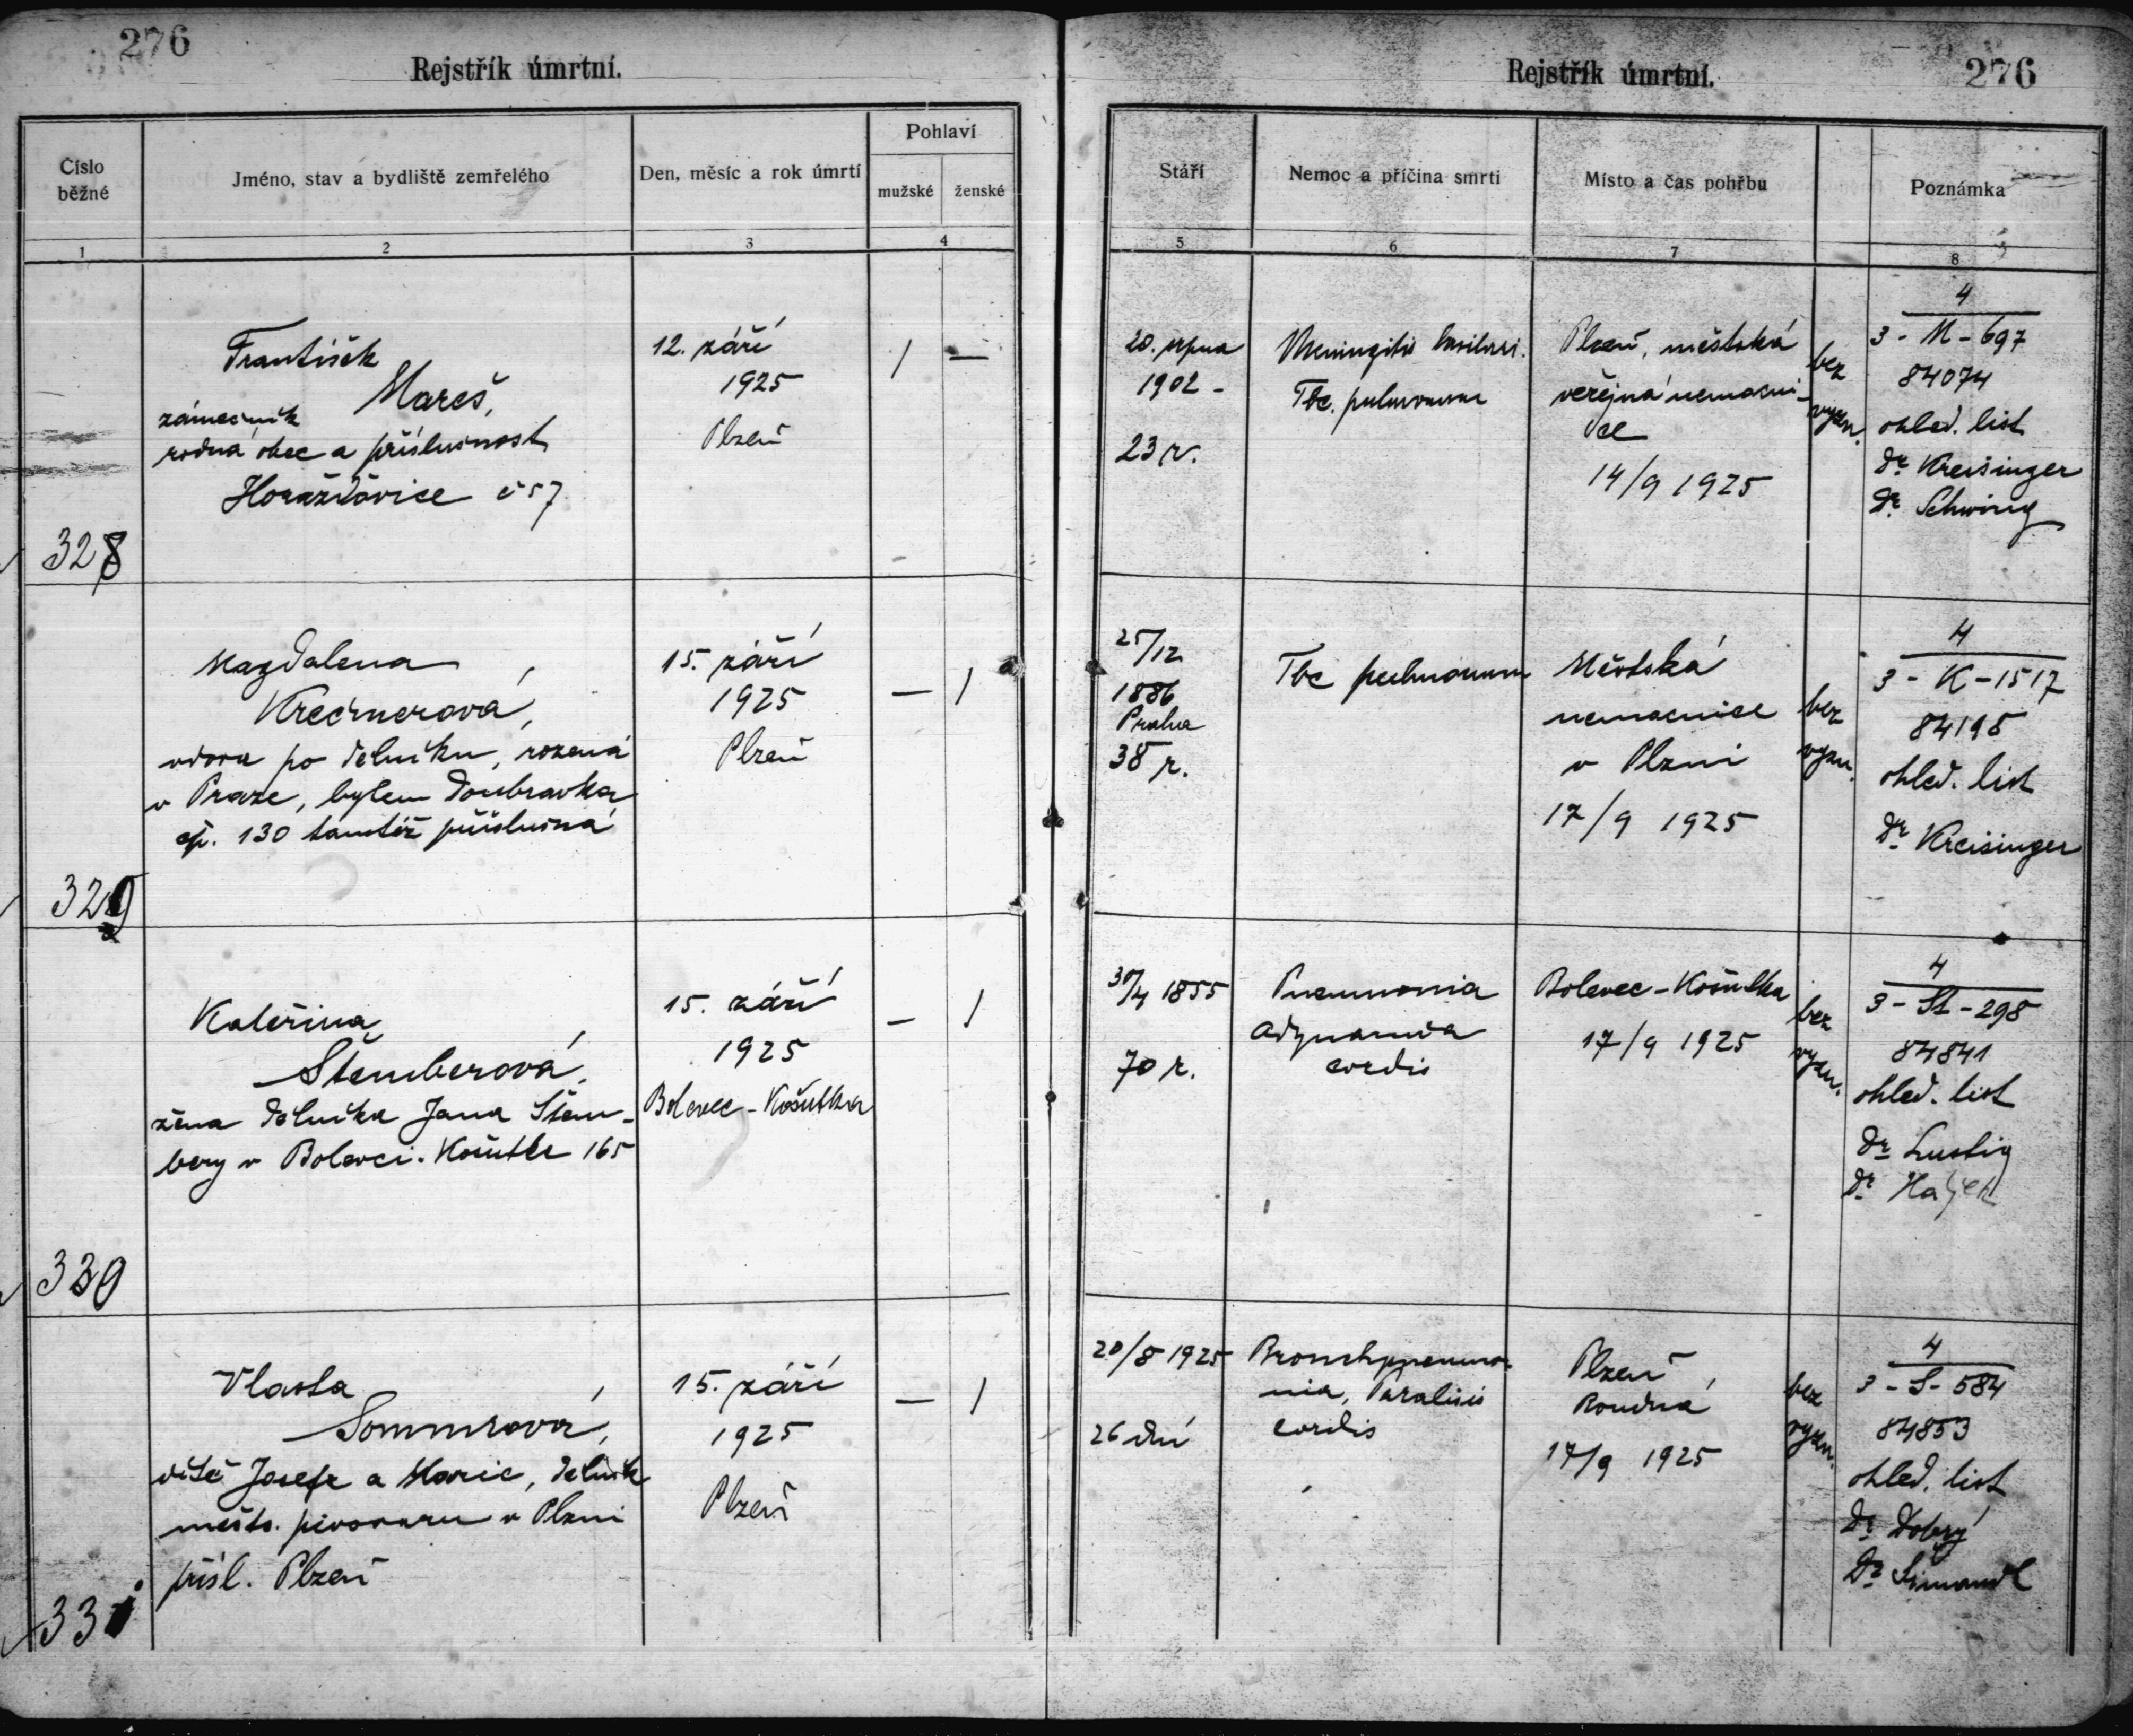 276
Rejstřík úmrtní.
Rejstřík úmrtní.
276
Číslo běžné
Jméno, stav a bydliště zemřelého
Den, měsíc a rok úmrtí
Pohlaví
mužské
ženské
Stáří
Nemoc a příčina smrti
Místo a čas pohřbu
Poznámka
1
2
3
4
5
6
7
8
328
František
Mareš,
zámečník
rodná obec a příslušnost
Horažďovice č 57
12. září
1925
Plzeň
/ —
20. srpna
1902 -
23 r.
Meningitis basilari.
Tbc. pulmonum
Plzeň, městská
veřejná nemocni-
ce
14/9 1925
bez
vyzn.
4
3 - M - 697
84074
ohled. list
Dr Kreisinger
Dr Schwing
329
Magdalena
Krečmerová,
vdova po dělníku, rozená
v Praze, bytem Doubravka
čp. 130 tamtéž příslušná
15. září
1925
Plzeň
— /
25/12
1886
Praha
38 r.
Tbc pulmonum
Městská
nemocnice
v Plzni
17/9 1925
bez
vyzn.
4
3 - K - 1517
84195
ohled. list
Dr Kreisinger
330
Kateřina
Štemberová,
žena dělníka Jana Štem-
bery v Bolevci-Košutce 165
15. září
1925
Bolevec - Košutka
— /
30/4 1855
70 r.
Pneumonia
adynamia
cordis
Bolevec - Košutka
17/9 1925
bez
vyzn.
4
3 - St - 298
84841
ohled. list
Dr Lustig
Dr Hajek
331
Vlasta
Sommrová,
dítě Josefa a Marie, dělník
měšťs. pivovaru v Plzni
přísl. Plzeň
15. září
1925
Plzeň
— /
20/8 1925
26 dní
Bronchpneumo-
nia, Paralisis
cordis
Plzeň
Roudná
17/9 1925
bez
vyzn.
4
3 - S - 584
84853
ohled. list
Dr Dobrý
Dr Šimandl